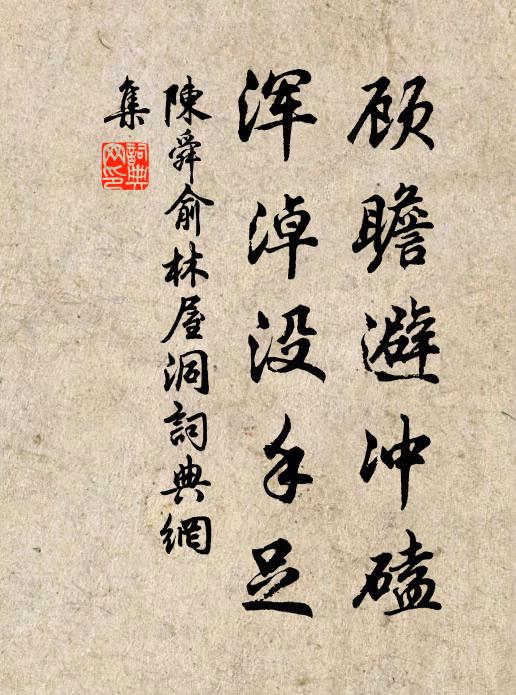 顾瞻避冲磕
浑淖没手足
陳舜俞林屋洞詞典網
集
詞典網印